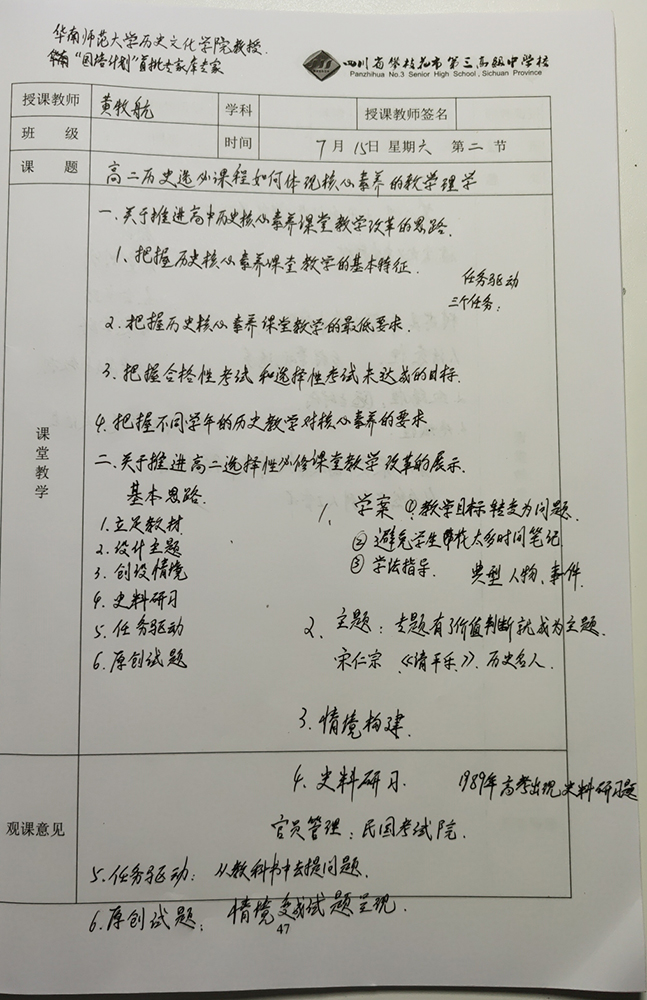 华南师范大学历史文化学院教授.
华南“国培计划”首批专家库专家
四川省攀枝花市第三高级中学校
Panzhihua No.3 Senior High School, Sichuan Province
授课教师 黄牧航 学科 授课教师签名
班 级 时间 7月15日 星期六 第二节
课 题 高二历史选必课程如何体现核心素养的教学理学
课堂教学
一.关于推进高中历史核心素养课堂教学改革的思路.
1、把握历史核心素养课堂教学的基本特征.
任务驱动
三个任务:
2.把握历史核心素养课堂教学的最低要求.
3.把握合格性考试和选择性考试未达成的目标.
4.把握不同学年的历史教学对核心素养的要求.
二、关于推进高二选择性必修课堂教学改革的展示.
基本思路.
1.立足教材
2.设计主题
3.创设情境
4.史料研习
5.任务驱动
6.原创试题
1、学案 ①教学目标转变为问题.
②避免学生花太多时间笔记
③学法指导. 典型人物、事件.
2、主题:专题有了价值判断就成为主题.
宋仁宗 《清平乐》.历史名人.
3.情境构建.
观课意见
4.史料研习. 1989年高考出现史料研习题
官员管理:民国考试院.
5.任务驱动: 从教科书中去提问题.
6.原创试题: 情境变成试题呈现.
47